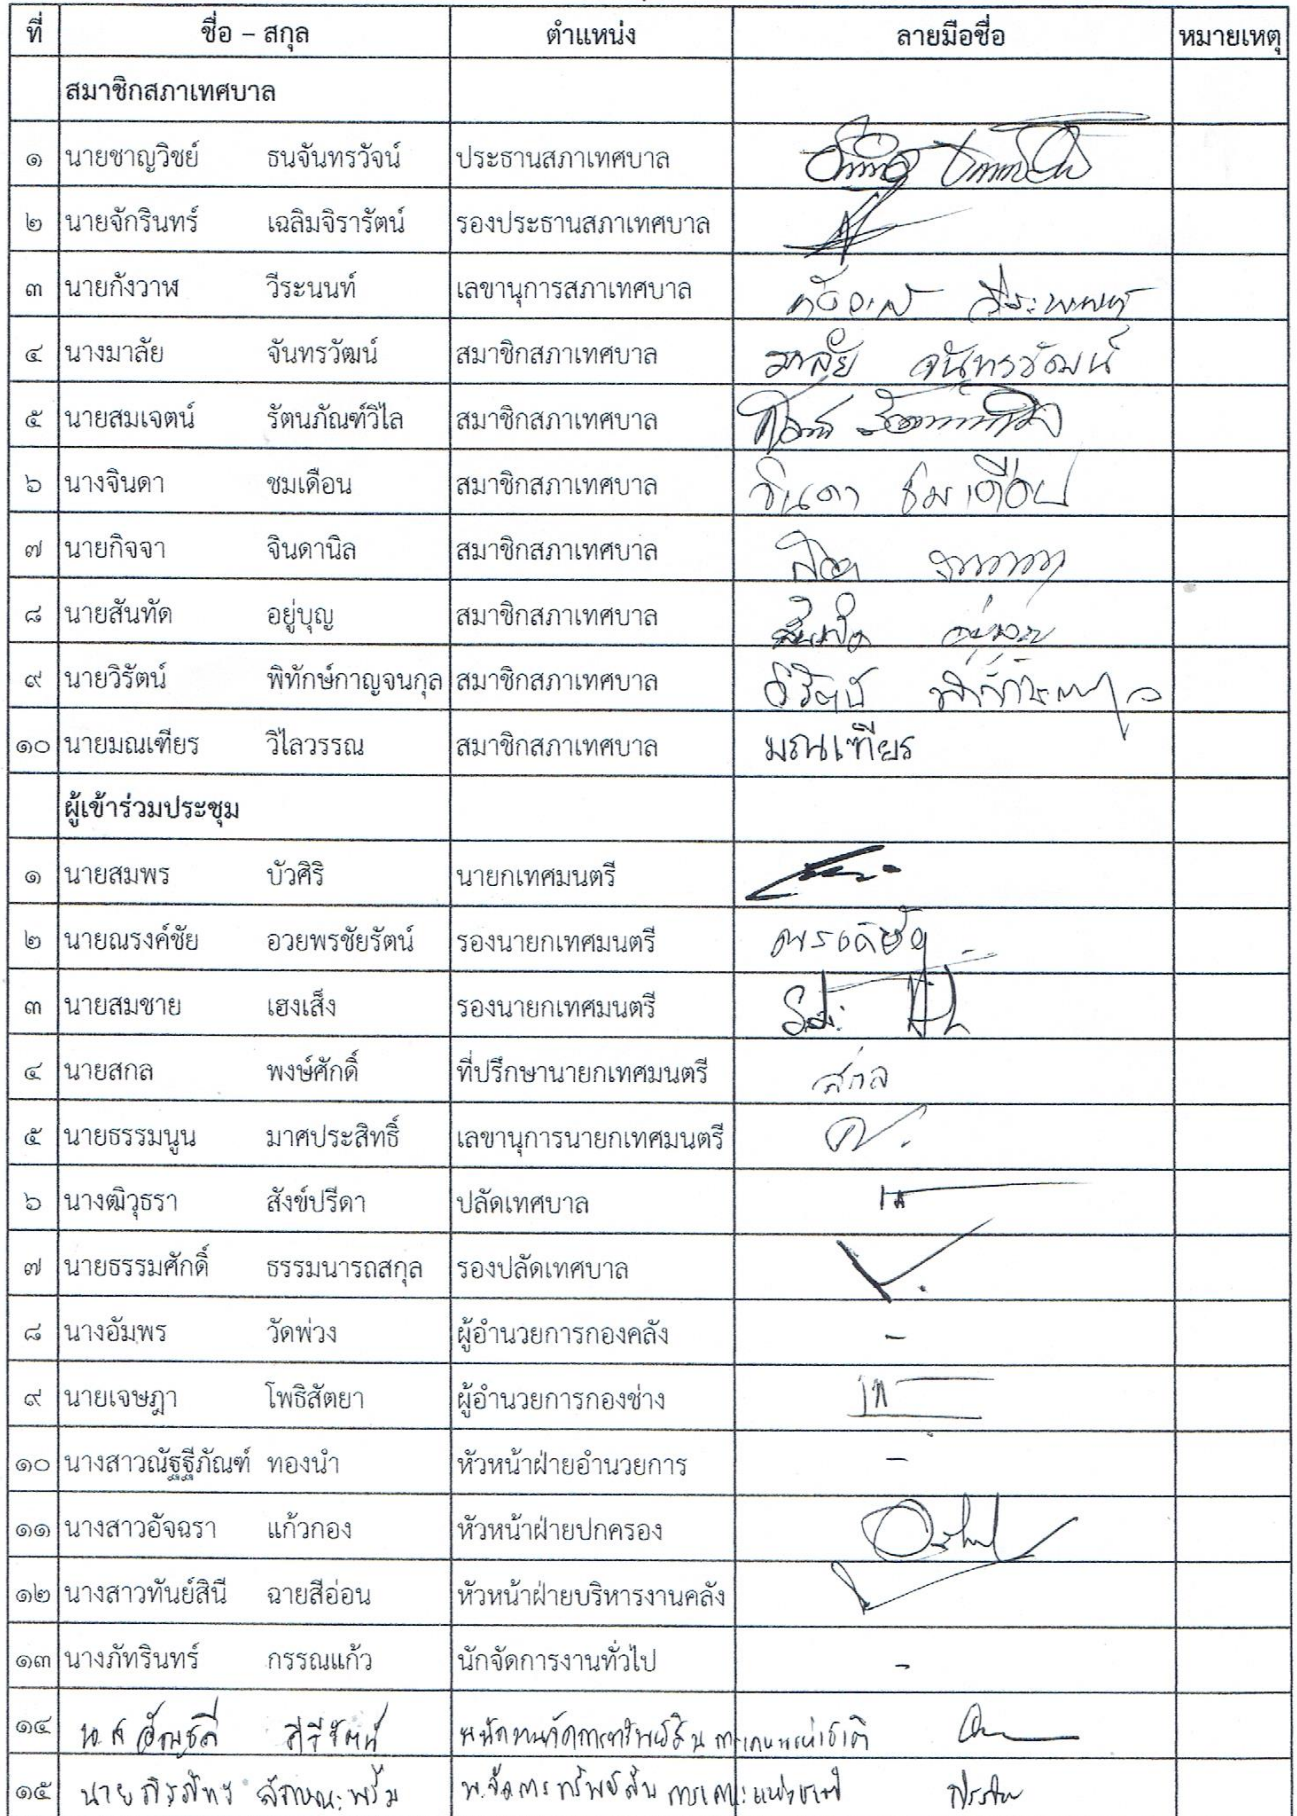 ที่ ชื่อ – สกุล ตำแหน่ง ลายมือชื่อ หมายเหตุ
สมาชิกสภาเทศบาล
๑ นายชาญวิชย์ ธนจันทรวัจน์ ประธานสภาเทศบาล
๒ นายจักรินทร์ เฉลิมจิรารัตน์ รองประธานสภาเทศบาล
๓ นายกังวาฬ วีระนนท์ เลขานุการสภาเทศบาล
๔ นางมาลัย จันทรวัฒน์ สมาชิกสภาเทศบาล มาลัย จันทรวัฒน์
๕ นายสมเจตน์ รัตนภัณฑ์วิไล สมาชิกสภาเทศบาล
๖ นางจินดา ชมเดือน สมาชิกสภาเทศบาล จินดา ชมเดือน
๗ นายกิจจา จินดานิล สมาชิกสภาเทศบาล
๘ นายสันทัด อยู่บุญ สมาชิกสภาเทศบาล
๙ นายวิรัตน์ พิทักษ์กาญจนกุล สมาชิกสภาเทศบาล วิรัตน์
๑๐ นายมณเฑียร วิไลวรรณ สมาชิกสภาเทศบาล มณเฑียร
ผู้เข้าร่วมประชุม
๑ นายสมพร บัวศิริ นายกเทศมนตรี
๒ นายณรงค์ชัย อวยพรชัยรัตน์ รองนายกเทศมนตรี ณรงค์ชัย
๓ นายสมชาย เฮงเส็ง รองนายกเทศมนตรี
๔ นายสกล พงษ์ศักดิ์ ที่ปรึกษานายกเทศมนตรี สกล
๕ นายธรรมนูน มาศประสิทธิ์ เลขานุการนายกเทศมนตรี
๖ นางฒิวุธรา สังข์ปรีดา ปลัดเทศบาล
๗ นายธรรมศักดิ์ ธรรมนารถสกุล รองปลัดเทศบาล
๘ นางอัมพร วัดพ่วง ผู้อำนวยการกองคลัง -
๙ นายเจษฎา โพธิสัตยา ผู้อำนวยการกองช่าง
๑๐ นางสาวณัฐฐีภัณฑ์ ทองนำ หัวหน้าฝ่ายอำนวยการ -
๑๑ นางสาวอัจฉรา แก้วกอง หัวหน้าฝ่ายปกครอง
๑๒ นางสาวทันย์สินี ฉายสีอ่อน หัวหน้าฝ่ายบริหารงานคลัง
๑๓ นางภัทรินทร์ กรรณแก้ว นักจัดการงานทั่วไป -
๑๔ น.ส อัญชลี ศิริรัตน์ พนักงานจัดการทรัพย์สิน การเคหะแห่งชาติ
๑๕ นาย พ.จัดการทรัพย์สิน การเคหะแห่งชาติ